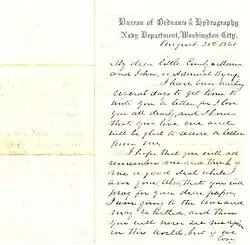 Bureau of Ordnance & Hydrography
Navy Department, Washington City.
August 30th 1861
My dear little Emily, William
and John, or Admiral Byng.
I have been waiting
several days to get time to
write you a letter, for I love
you all dearly, and I know
that you love me and
will be glad to receive a letter
from me.
I hope that you will all
remember me and think of
me a good deal while I
am gone. Also, that you will
pray for your dear papa.
I am going to the war and
may be killed, and then
you will never see me again
in this world, but if we